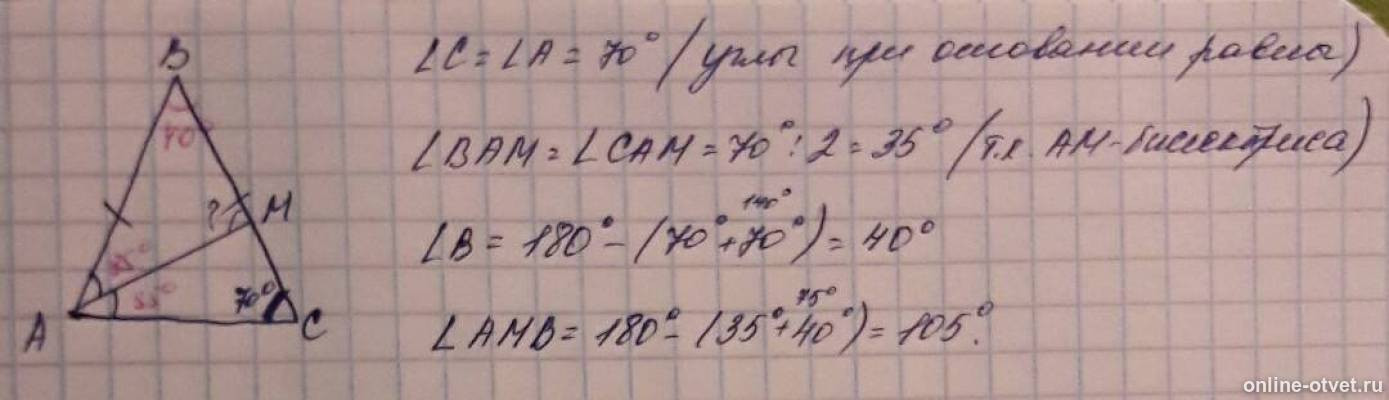 B
40°
? M
35°
35°
70°
A C
∠C = ∠A = 70° (углы при основании равны)
∠BAM = ∠CAM = 70° : 2 = 35° (т.к. AM - биссектриса)
140°
∠B = 180° - (70° + 70°) = 40°
75°
∠AMB = 180° - (35° + 40°) = 105°.
online-otvet.ru